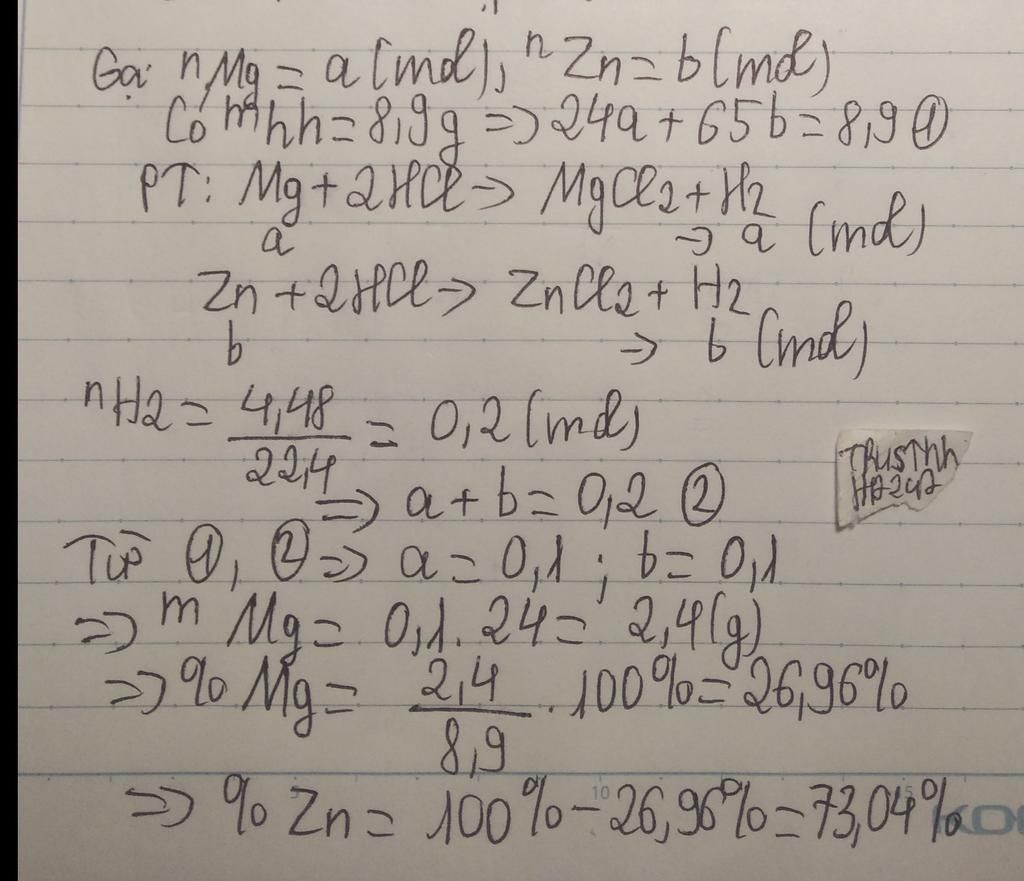 Gọi nMg = a (mol), nZn = b (mol)
Có mhh = 8,9g => 24a + 65b = 8,9 ①
PT: Mg + 2HCl -> MgCl2 + H2
a -> a (mol)
Zn + 2HCl -> ZnCl2 + H2
b -> b (mol)
nH2 = 4,48/22,4 = 0,2 (mol)
=> a + b = 0,2 ②
TRUSThh
Từ ①, ② => a = 0,1 ; b = 0,1
=> m Mg = 0,1 . 24 = 2,4 (g)
=> % Mg = 2,4/8,9 . 100% = 26,96%
=> % Zn = 100% - 26,96% = 73,04%